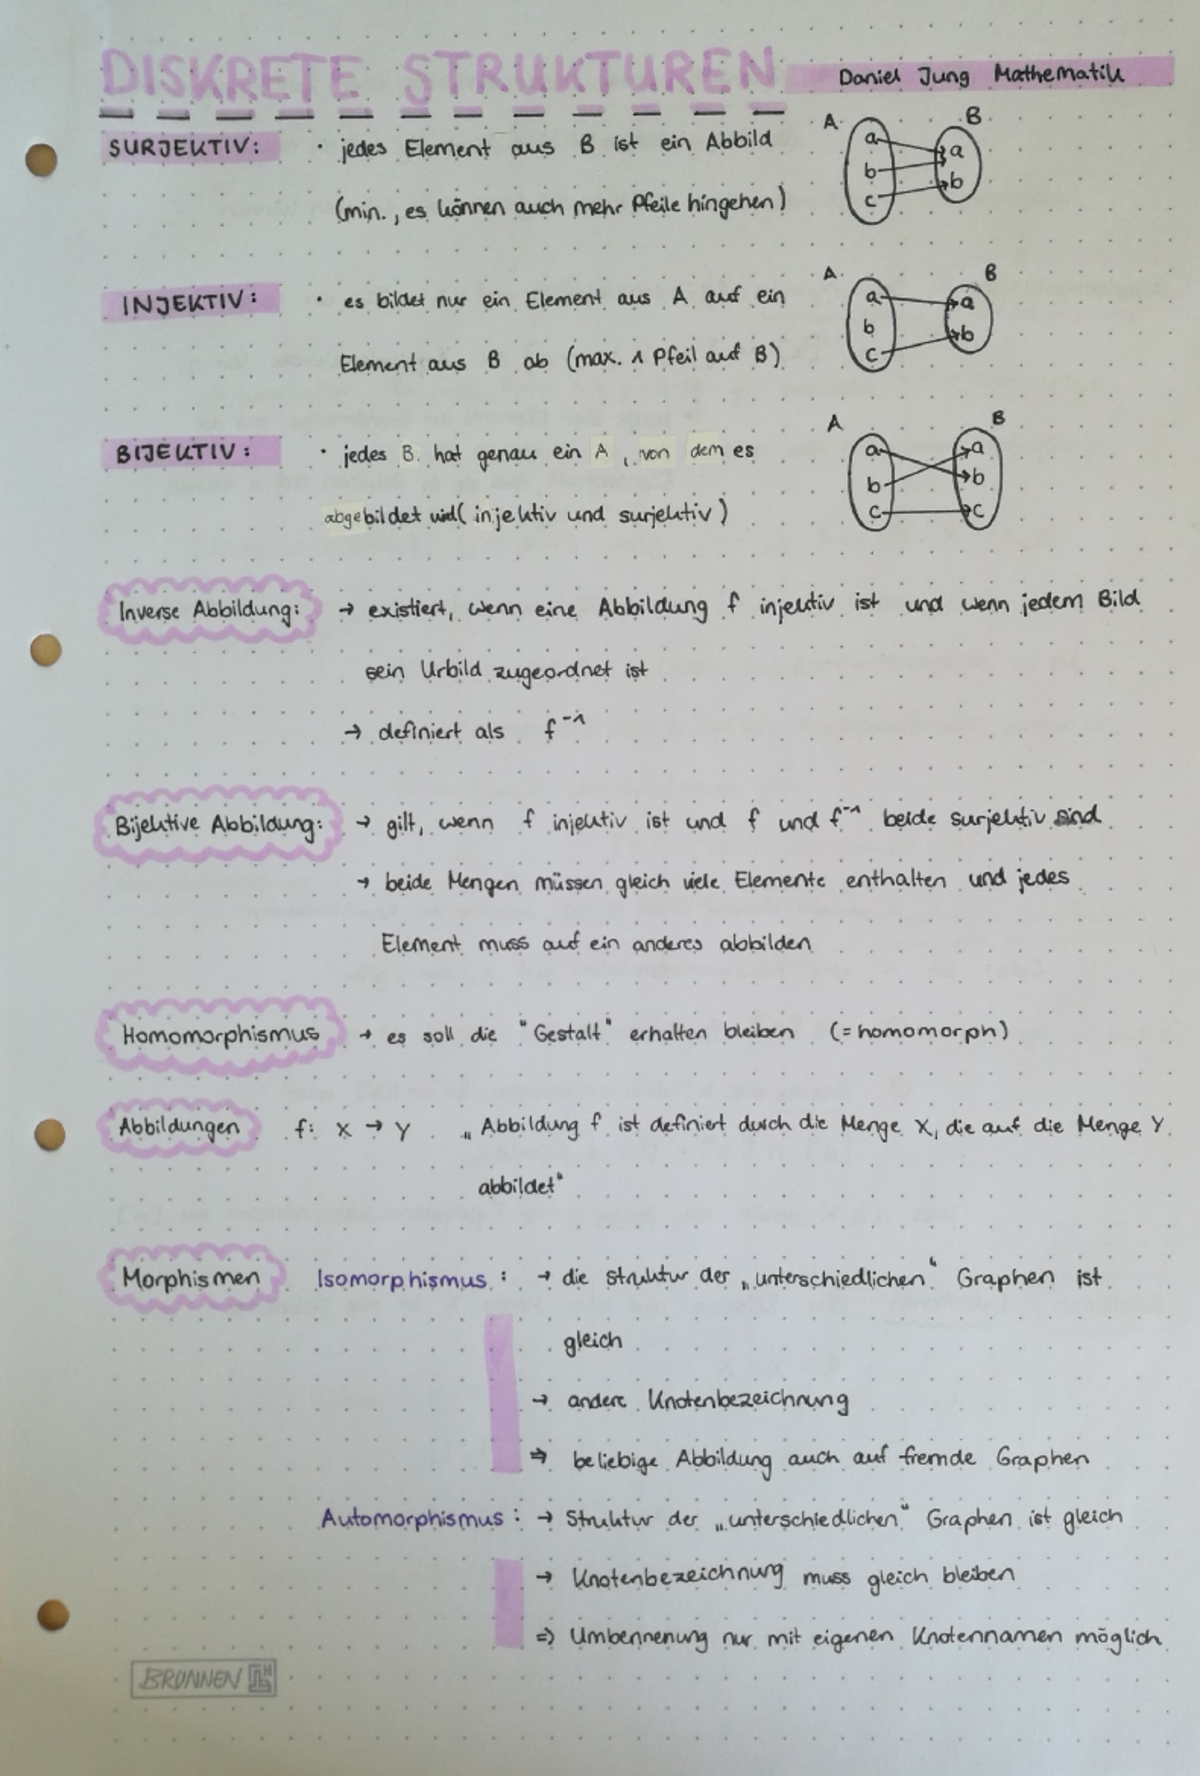 DISKRETE STRUKTUREN
Daniel Jung Mathematik
SURJEKTIV: · jedes Element aus B ist ein Abbild
(min., es können auch mehr Pfeile hingehen)
A B
a a
b b
c
INJEKTIV: · es bildet nur ein Element aus A auf ein
Element aus B ab (max. 1 Pfeil auf B)
A B
a a
b b
c
BIJEKTIV: · jedes B hat genau ein A, von dem es
abgebildet wird (injektiv und surjektiv)
A B
a a
b b
c c
Inverse Abbildung: → existiert, wenn eine Abbildung f injektiv ist und wenn jedem Bild
sein Urbild zugeordnet ist
→ definiert als f⁻¹
Bijektive Abbildung: → gilt, wenn f injektiv ist und f und f⁻¹ beide surjektiv sind
→ beide Mengen müssen gleich viele Elemente enthalten und jedes
Element muss auf ein anderes abbilden
Homomorphismus → es soll die "Gestalt" erhalten bleiben (= homomorph)
Abbildungen f: X → Y „Abbildung f ist definiert durch die Menge X, die auf die Menge Y
abbildet"
Morphismen Isomorphismus: → die struktur der „unterschiedlichen" Graphen ist
gleich
→ andere Knotenbezeichnung
⇒ beliebige Abbildung auch auf fremde Graphen
Automorphismus: → Struktur der „unterschiedlichen" Graphen ist gleich
→ Knotenbezeichnung muss gleich bleiben
⇒ Umbennenung nur mit eigenen Knotennamen möglich
BRUNNEN